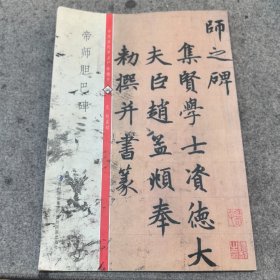 師之碑
集賢學士資德大
夫臣趙孟頫奉
勑撰并書篆
帝师胆巴碑